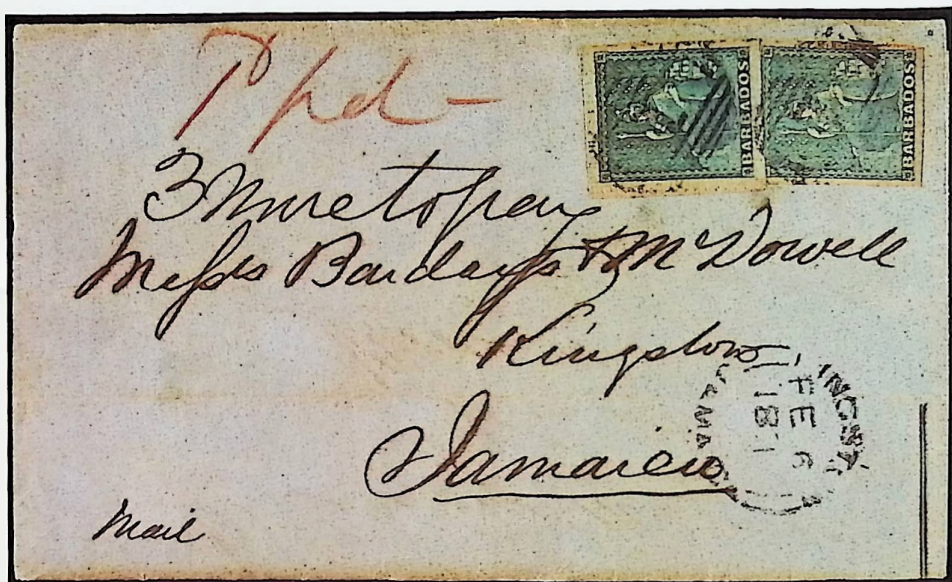 1d pd -
BARBADOS
BARBADOS
3 more to pay
Messrs Barclays & McDowell
Kingston
Jamaica
FE 6
1871
JAMAICA
Mail